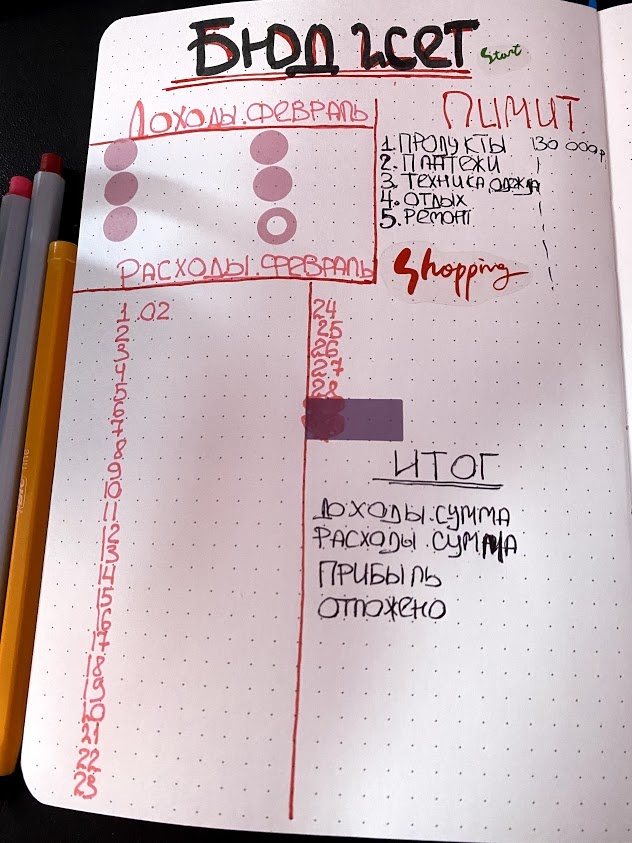 БЮДЖЕТ
Start
ДОХОДЫ.ФЕВРАЛЬ
ЛИМИТ
1.ПРОДУКТЫ 130 000р.
2.ПЛАТЕЖИ
3.ТЕХНИКА,ОДЕЖДА
4.ОТДЫХ
5.РЕМОНТ
Shopping
РАСХОДЫ.ФЕВРАЛЬ
1.02
2
3
4
5
6
7
8
9
10
11
12
13
14
15
16
17
18
19
20
21
22
23
24
25
26
27
28
ИТОГ
ДОХОДЫ.СУММА
РАСХОДЫ.СУММА
ПРИБЫЛЬ
ОТЛОЖЕНО